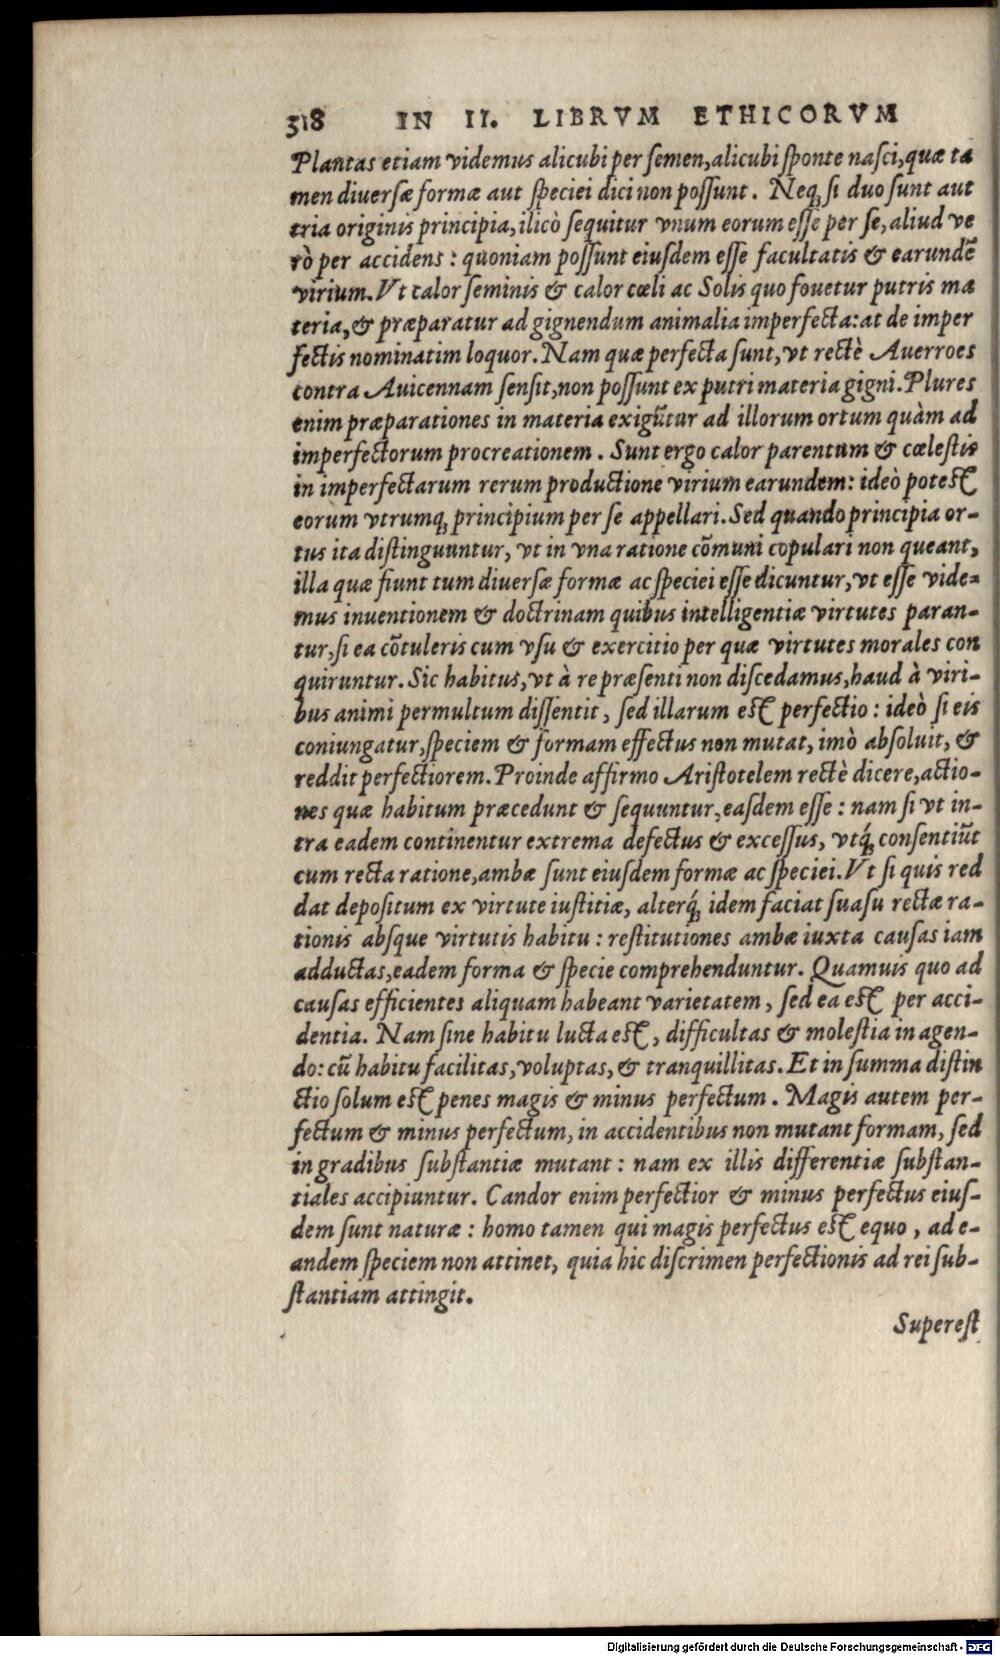 318 IN II. LIBRVM ETHICORVM
Plantas etiam videmus alicubi per ſemen, alicubi ſponte naſci, quæ ta
men diuerſæ formæ aut ſpeciei dici non poſſunt. Neq; ſi duo ſunt aut
tria originis principia, ilicò ſequitur vnum eorum eſſe per ſe, aliud ve
rò per accidens: quoniam poſſunt eiuſdem eſſe facultatis & earundē
virium. Vt calor ſeminis & calor cœli ac Solis quo fouetur putris ma
teria, & præparatur ad gignendum animalia imperfecta: at de imper
fectis nominatim loquor. Nam quæ perfecta ſunt, vt rectè Auerroes
contra Auicennam ſenſit, non poſſunt ex putri materia gigni. Plures
enim præparationes in materia exigūtur ad illorum ortum quàm ad
imperfectorum procreationem. Sunt ergo calor parentum & cœleſtis
in imperfectarum rerum productione virium earundem: ideò poteſt
eorum vtrumq; principium per ſe appellari. Sed quando principia or-
tus ita diſtinguuntur, vt in vna ratione cōmuni copulari non queant,
illa quæ fiunt tum diuerſæ formæ ac ſpeciei eſſe dicuntur, vt eſſe vide-
mus inuentionem & doctrinam quibus intelligentiæ virtutes paran-
tur, ſi ea cōtuleris cum vſu & exercitio per quæ virtutes morales con
quiruntur. Sic habitus, vt à re præſenti non diſcedamus, haud à viri-
bus animi permultum diſſentit, ſed illarum eſt perfectio: ideò ſi eis
coniungatur, ſpeciem & formam effectus non mutat, imò abſoluit, &
reddit perfectiorem. Proinde affirmo Ariſtotelem rectè dicere, actio-
nes quæ habitum præcedunt & ſequuntur, eaſdem eſſe: nam ſi vt in-
tra eadem continentur extrema defectus & exceſſus, vtq́; conſentiūt
cum recta ratione, ambæ ſunt eiuſdem formæ ac ſpeciei. Vt ſi quis red
dat depoſitum ex virtute iuſtitiæ, alterq́; idem faciat ſuaſu rectæ ra-
tionis abſque virtutis habitu: reſtitutiones ambæ iuxta cauſas iam
adductas, eadem forma & ſpecie comprehenduntur. Quamuis quo ad
cauſas efficientes aliquam habeant varietatem, ſed ea eſt per acci-
dentia. Nam ſine habitu lucta eſt, difficultas & moleſtia in agen-
do: cū habitu facilitas, voluptas, & tranquillitas. Et in ſumma diſtin
ctio ſolum eſt penes magis & minus perfectum. Magis autem per-
fectum & minus perfectum, in accidentibus non mutant formam, ſed
in gradibus ſubſtantiæ mutant: nam ex illis differentiæ ſubſtan-
tiales accipiuntur. Candor enim perfectior & minus perfectus eiuſ-
dem ſunt naturæ: homo tamen qui magis perfectus eſt equo, ad e-
andem ſpeciem non attinet, quia hic diſcrimen perfectionis ad rei ſub-
ſtantiam attingit.
Supereſt
Digitalisierung gefördert durch die Deutsche Forschungsgemeinschaft - DFG